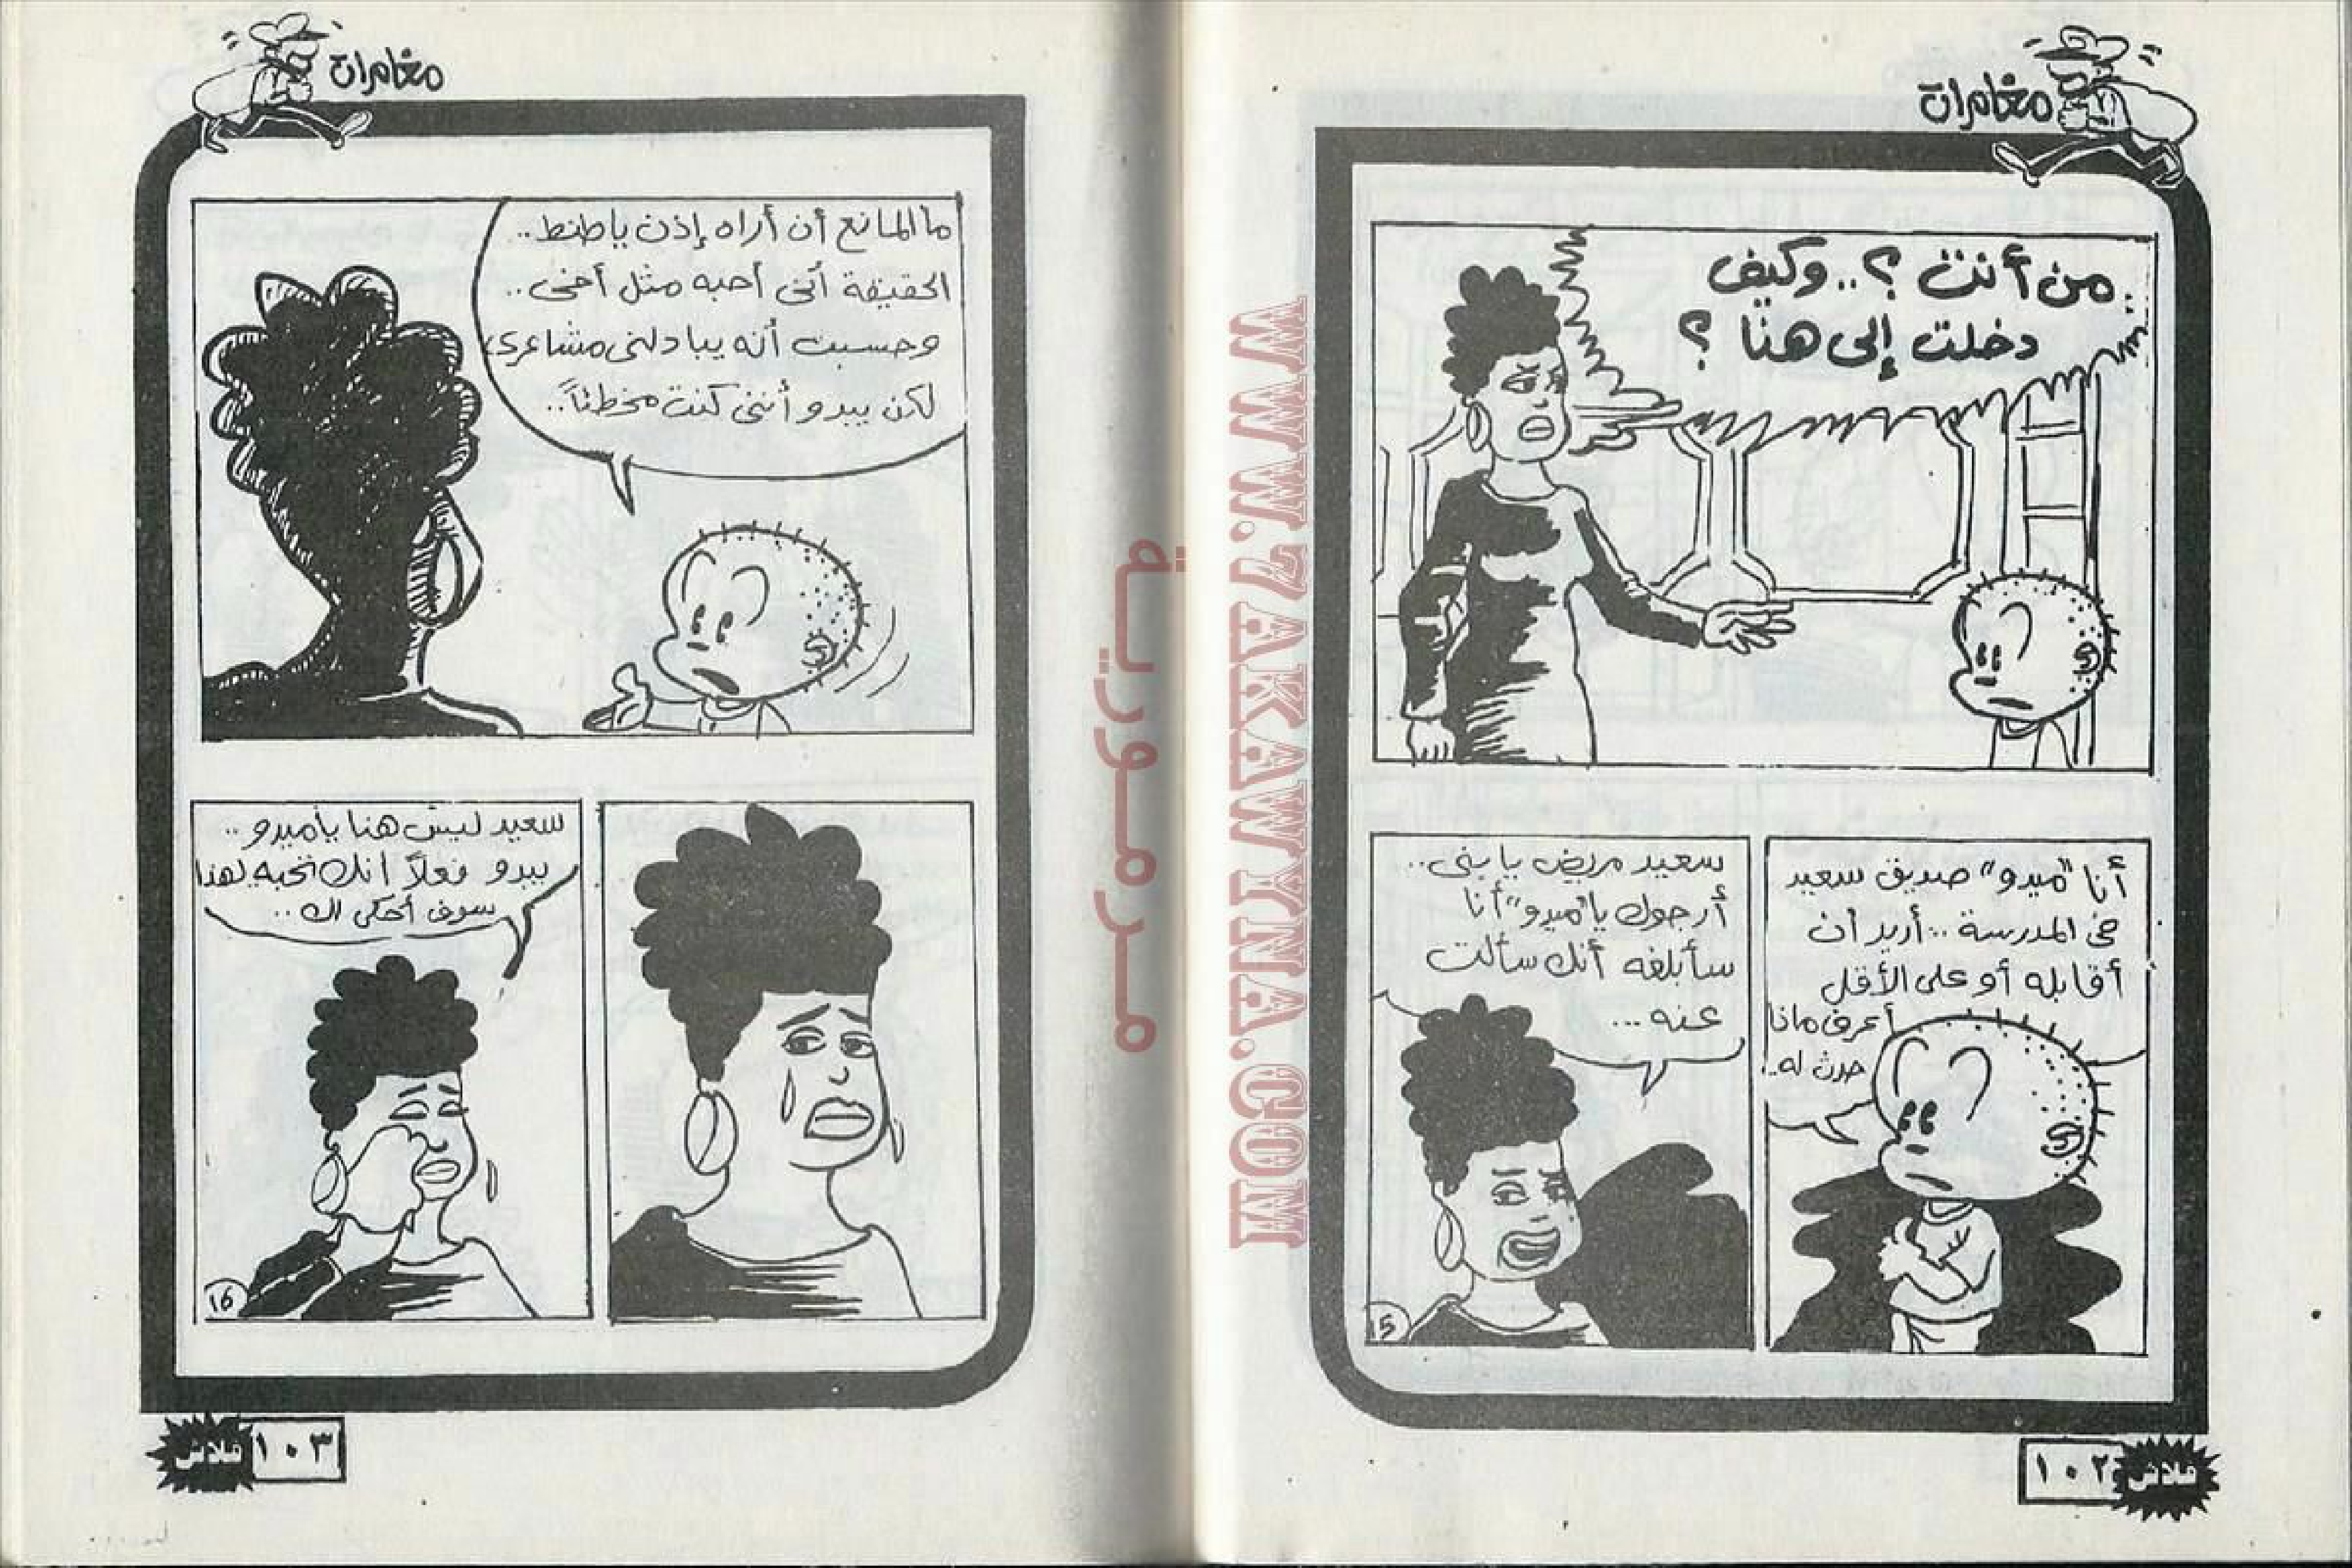 مغامرات
من أنت ؟.. وكيف
دخلت إلى هنا ؟
أنا "ميدو" صديق سعيد
فى المدرسة .. أريد أن
أقابله أو على الأقل
أعرف ماذا
حدث له ..
سعيد مريض يا بنى ..
أرجوك يا "ميدو" أنا
سأبلغه أنك سألت
عنه ...
15
١٠٢
فلاش
مغامرات
ما المانع أن أراه إذن يا طنط ..
الحقيقة أننى أحبه مثل أخى ..
وحسبت أنه يبادلنى مشاعرى
لكن يبدو أننى كنت مخطئاً ..
سعيد ليس هنا يا ميدو ..
يبدو فعلاً انك تحبه لهذا
سوف أحكى لك ..
16
١٠٣
فلاش
WWW.7AKAWYNA.COM
مرمورية